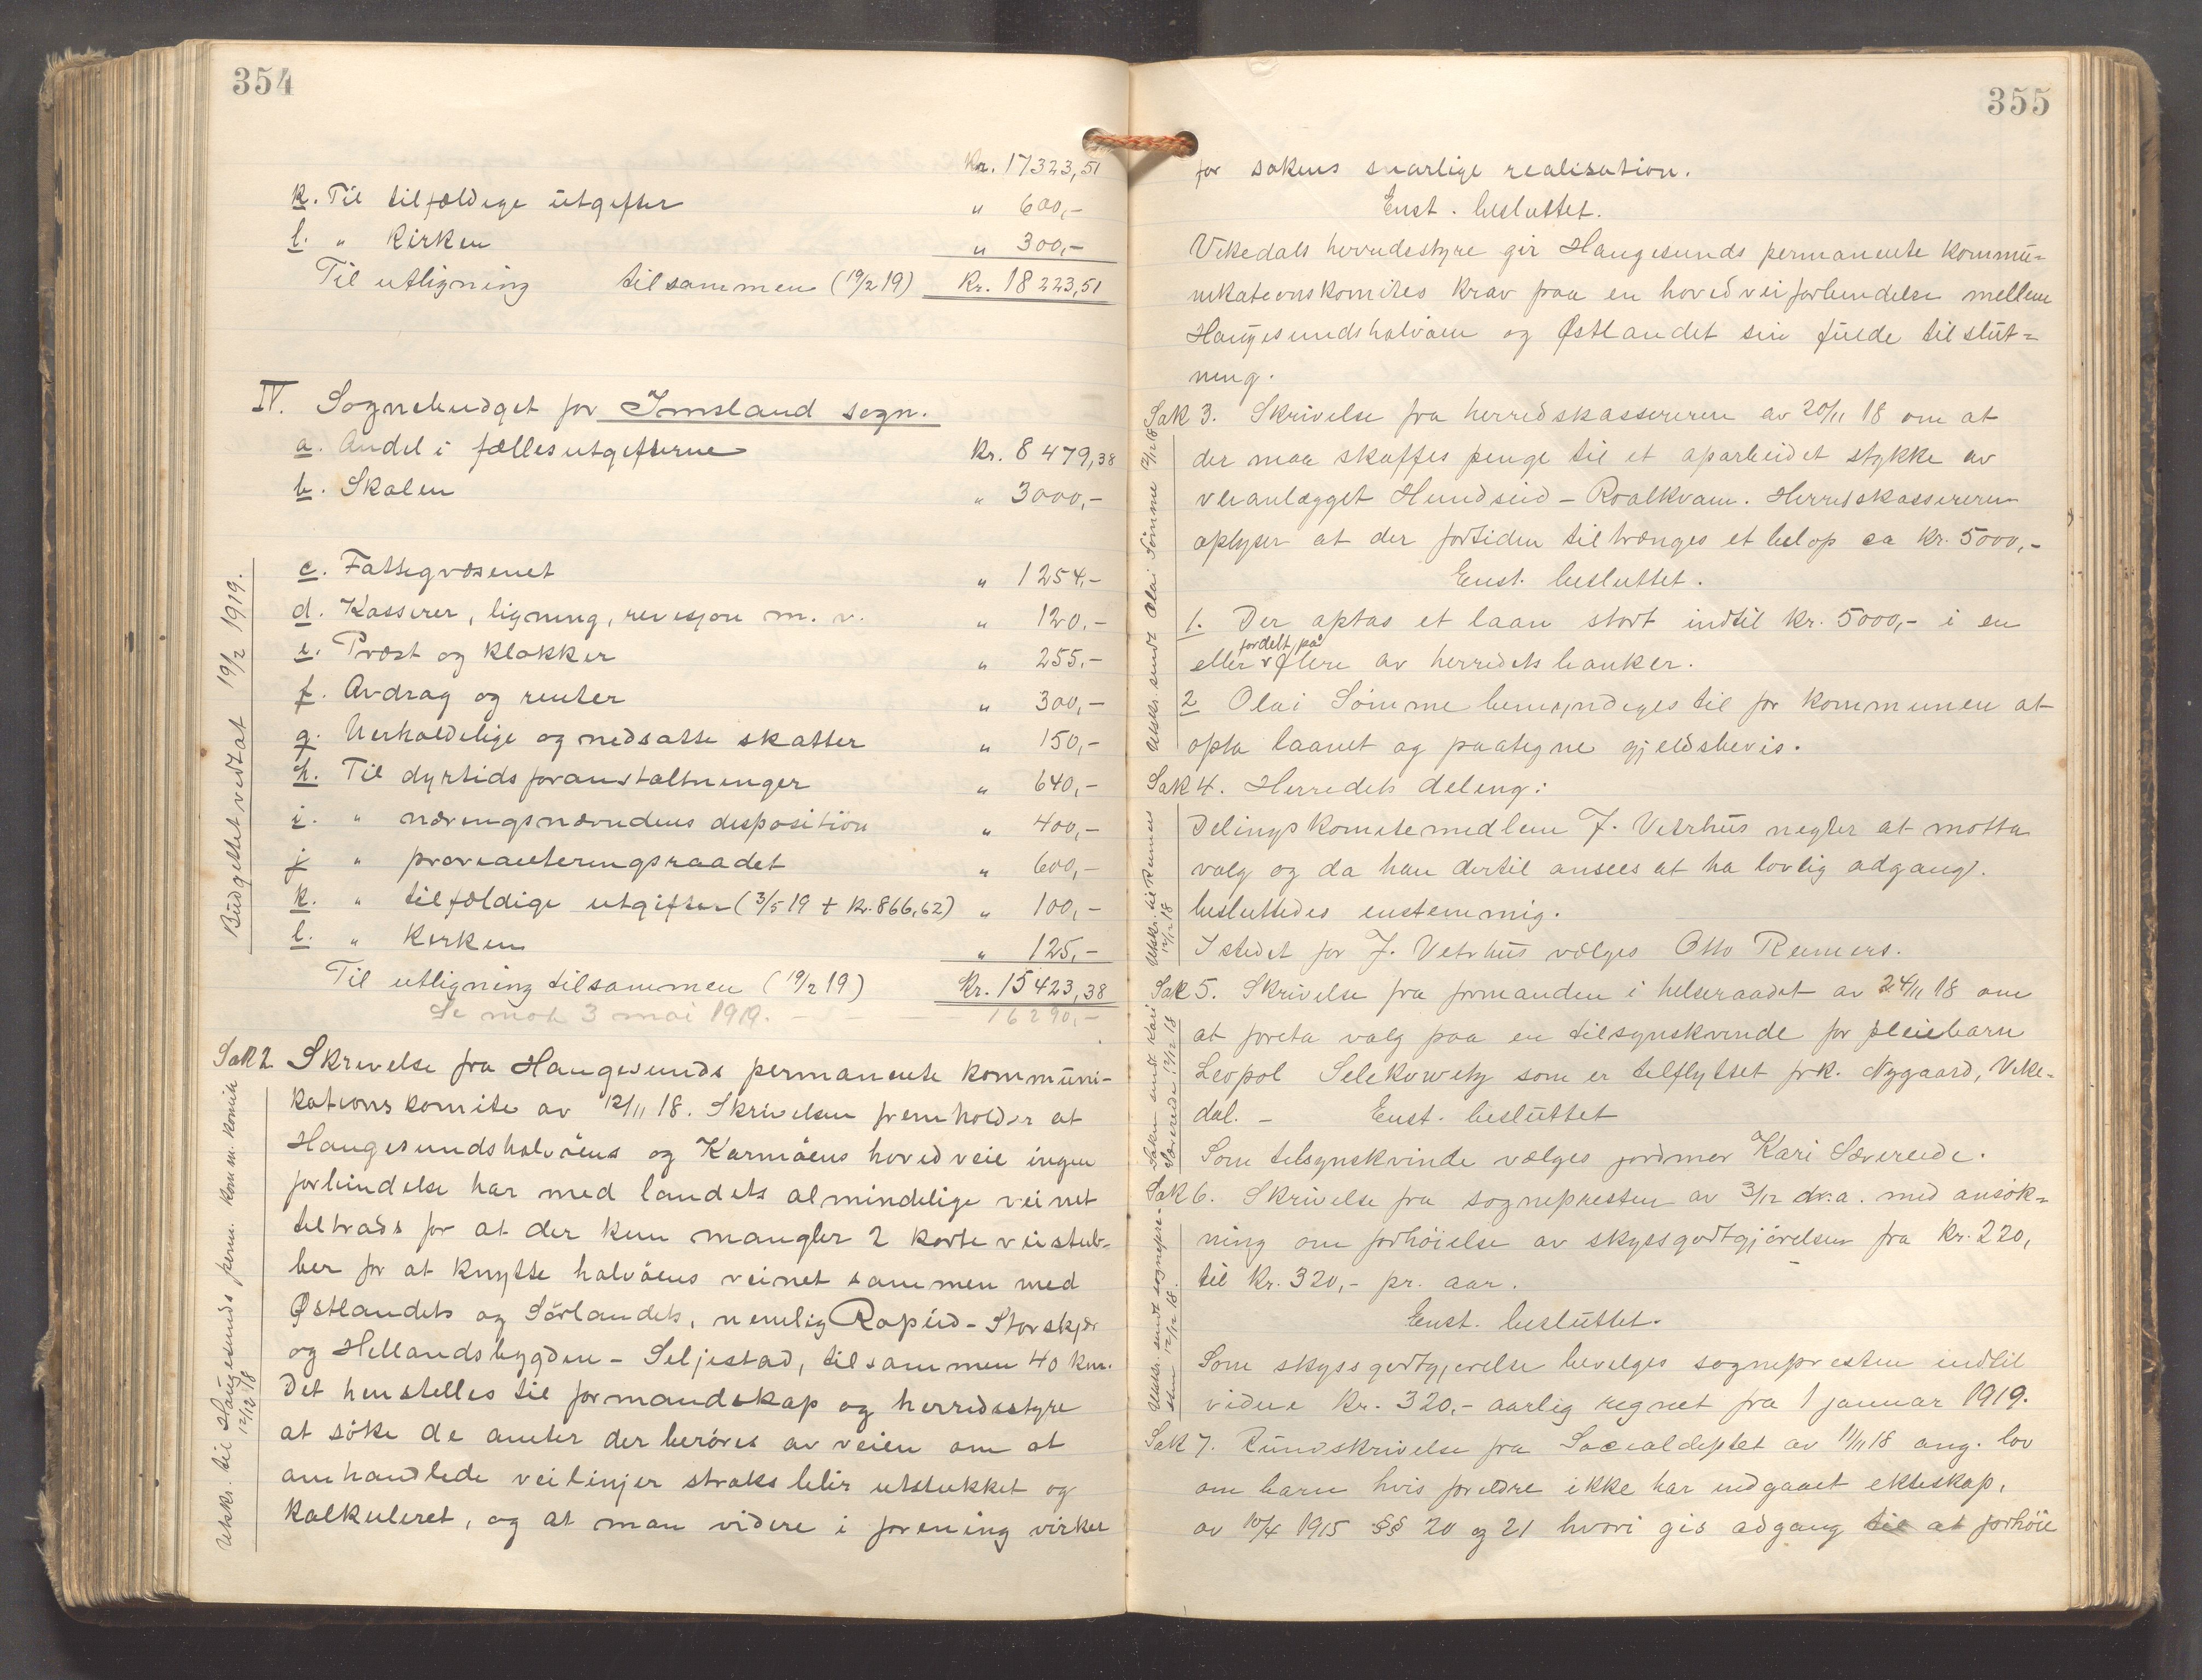 354
Kr. 17323,51
k. Til tilfældige utgifter " 600,-
l. " Kirken " 300,-
Til utligning tilsammen (19/2 19) Kr. 18 223,51
IV. Sognebudget for Imsland sogn.
a. Andel i fællesutgifterne Kr. 8 479,38
b. Skolen " 3000,-
c. Fattigvæsenet " 1254,-
d. Kasserer, ligning, revisjon m. v. " 120.-
e. Præst og klokker " 255.-
f. Avdrag og renter " 300,-
g. Uerholdelige og nedsatte skatter " 150,-
h. Til dyrtidsforanstaltninger " 640,-
i. " næringsnævndens disposition " 400,-
j " provianteringsraadet " 600,-
k. " tilfældige utgifter (3/5 19 + kr. 866,62) " 100,-
l. " Kirken " 125,-
Til utligning tilsammen (19/2 19) Kr. 15 423,38
Se møte 3 mai 1919. 16 290,-
Budgettet vedtat 19/2 1919.
Sak 2 Skrivelse fra Haugesunds permanente kommuni-
kationskomite av 12/11 18. Skrivelsen fremholder at
Haugesundshalvöens og Karmöens hovedveie ingen
forbindelse har med landets almindelige veinet
tiltrods for at der kun mangler 2 korte veistub-
ber for at knytte halvöens veinet sammen med
Østlandets og Sörlandets, nemlig Ropeid - Storskjær
og Hellandsbygden - Seljestad, tilsammen 40 km.
Det henstilles til formandskap og herredsstyre
at söke de amter der beröres av veien om at
omhandlede veilinjer straks blir utstukket og
kalkuleret, og at man videre i forening virker
Utskr. til Haugesunds perm. komm. komite
12/12 18
355
for sakens snarlige realisation.
Enst. besluttet.
Vikedals herredsstyre gir Haugesunds permanente kommu-
nikationskomites krav paa en hovedveiforbindelse mellem
Haugesundshalvöen og Østlandet sin fulde tilslut-
ning.
Sak 3. Skrivelse fra herredskassereren av 20/11 18 om at
der maa skaffes penge til et oparbeidet stykke av
veianlægget Hundseid - Roalkvam. Herredskassereren
oplyser at der fortiden tiltrænges et belöp ca kr. 5000,-
Enst. besluttet.
1. Der optas et laan stort indtil kr. 5000,- i en
fordelt på
eller v flere av herredets banker.
2 Olai Sömme bemyndiges til for kommunen at
opta laanet og paategne gjeldsbevis.
Utskr. sendt Olai Sömme 12/12 18
Sak 4. Herredets deling:
Delingskomitemedlem J. Vetrhus negter at motta
valg og da han dertil ansees at ha lovlig adgang.
besluttedes enstemmig.
I stedet for J. Vetrhus vælges Otto Reimers.
Utskr. til Reimers
12/12 18
Sak 5. Skrivelse fra formanden i helseraadet av 24/11 18 om
at foreta valg paa en tilsynskvinde for pleiebarn
Leopol Selekowitz som er tilflyttet frk. Nygaard, Vike-
dal. - Enst. besluttet
Som tilsynskvinde vælges jordmor Kari Særereide.
Saken sendt Kari
Særereide 12/12 18
Sak 6. Skrivelse fra sognepresten av 3/12 d.a. med ansök-
ning om forhöielse av skyssgodtgjörelsen fra kr. 220,
til kr. 320,- pr. aar.
Enst. besluttet.
Som skyssgodtgjørelse bevilges sognepresten indtil
videre kr. 320,- aarlig regnet fra 1 januar 1919.
Utskr. sendt sognepre-
sten 12/12 18.
Sak 7. Rundskrivelse fra Socialdeptet av 11/11 18 ang. lov
om barn hvis foreldre ikke har indgaaet ekteskap,
av 10/4 1915 §§ 20 og 21 hvori gis adgang til at forhöie